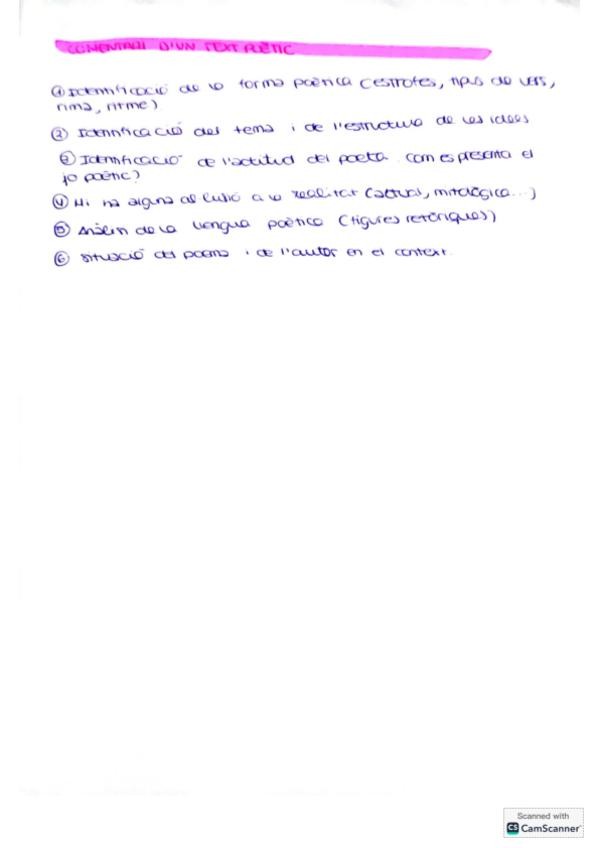 COMENTARI D'UN TEXT POÈTIC
① Identificació de la forma poètica (estrofes, tipus de vers,
rima, ritme)
② Identificació del tema i de l'estructura de les idees
③ Identificació de l'actitud del poeta. Com es presenta el
jo poètic?
④ Hi ha alguna al·lusió a la realitat (actual, mitològica...)
⑤ Anàlisi de la llengua poètica (figures retòriques)
⑥ Situació del poema i de l'autor en el context.
Scanned with
CS CamScanner